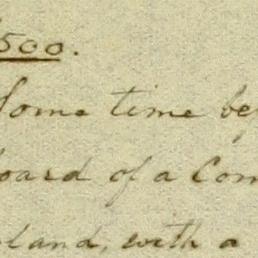 500.
Some time be
board of a Com
land, with a